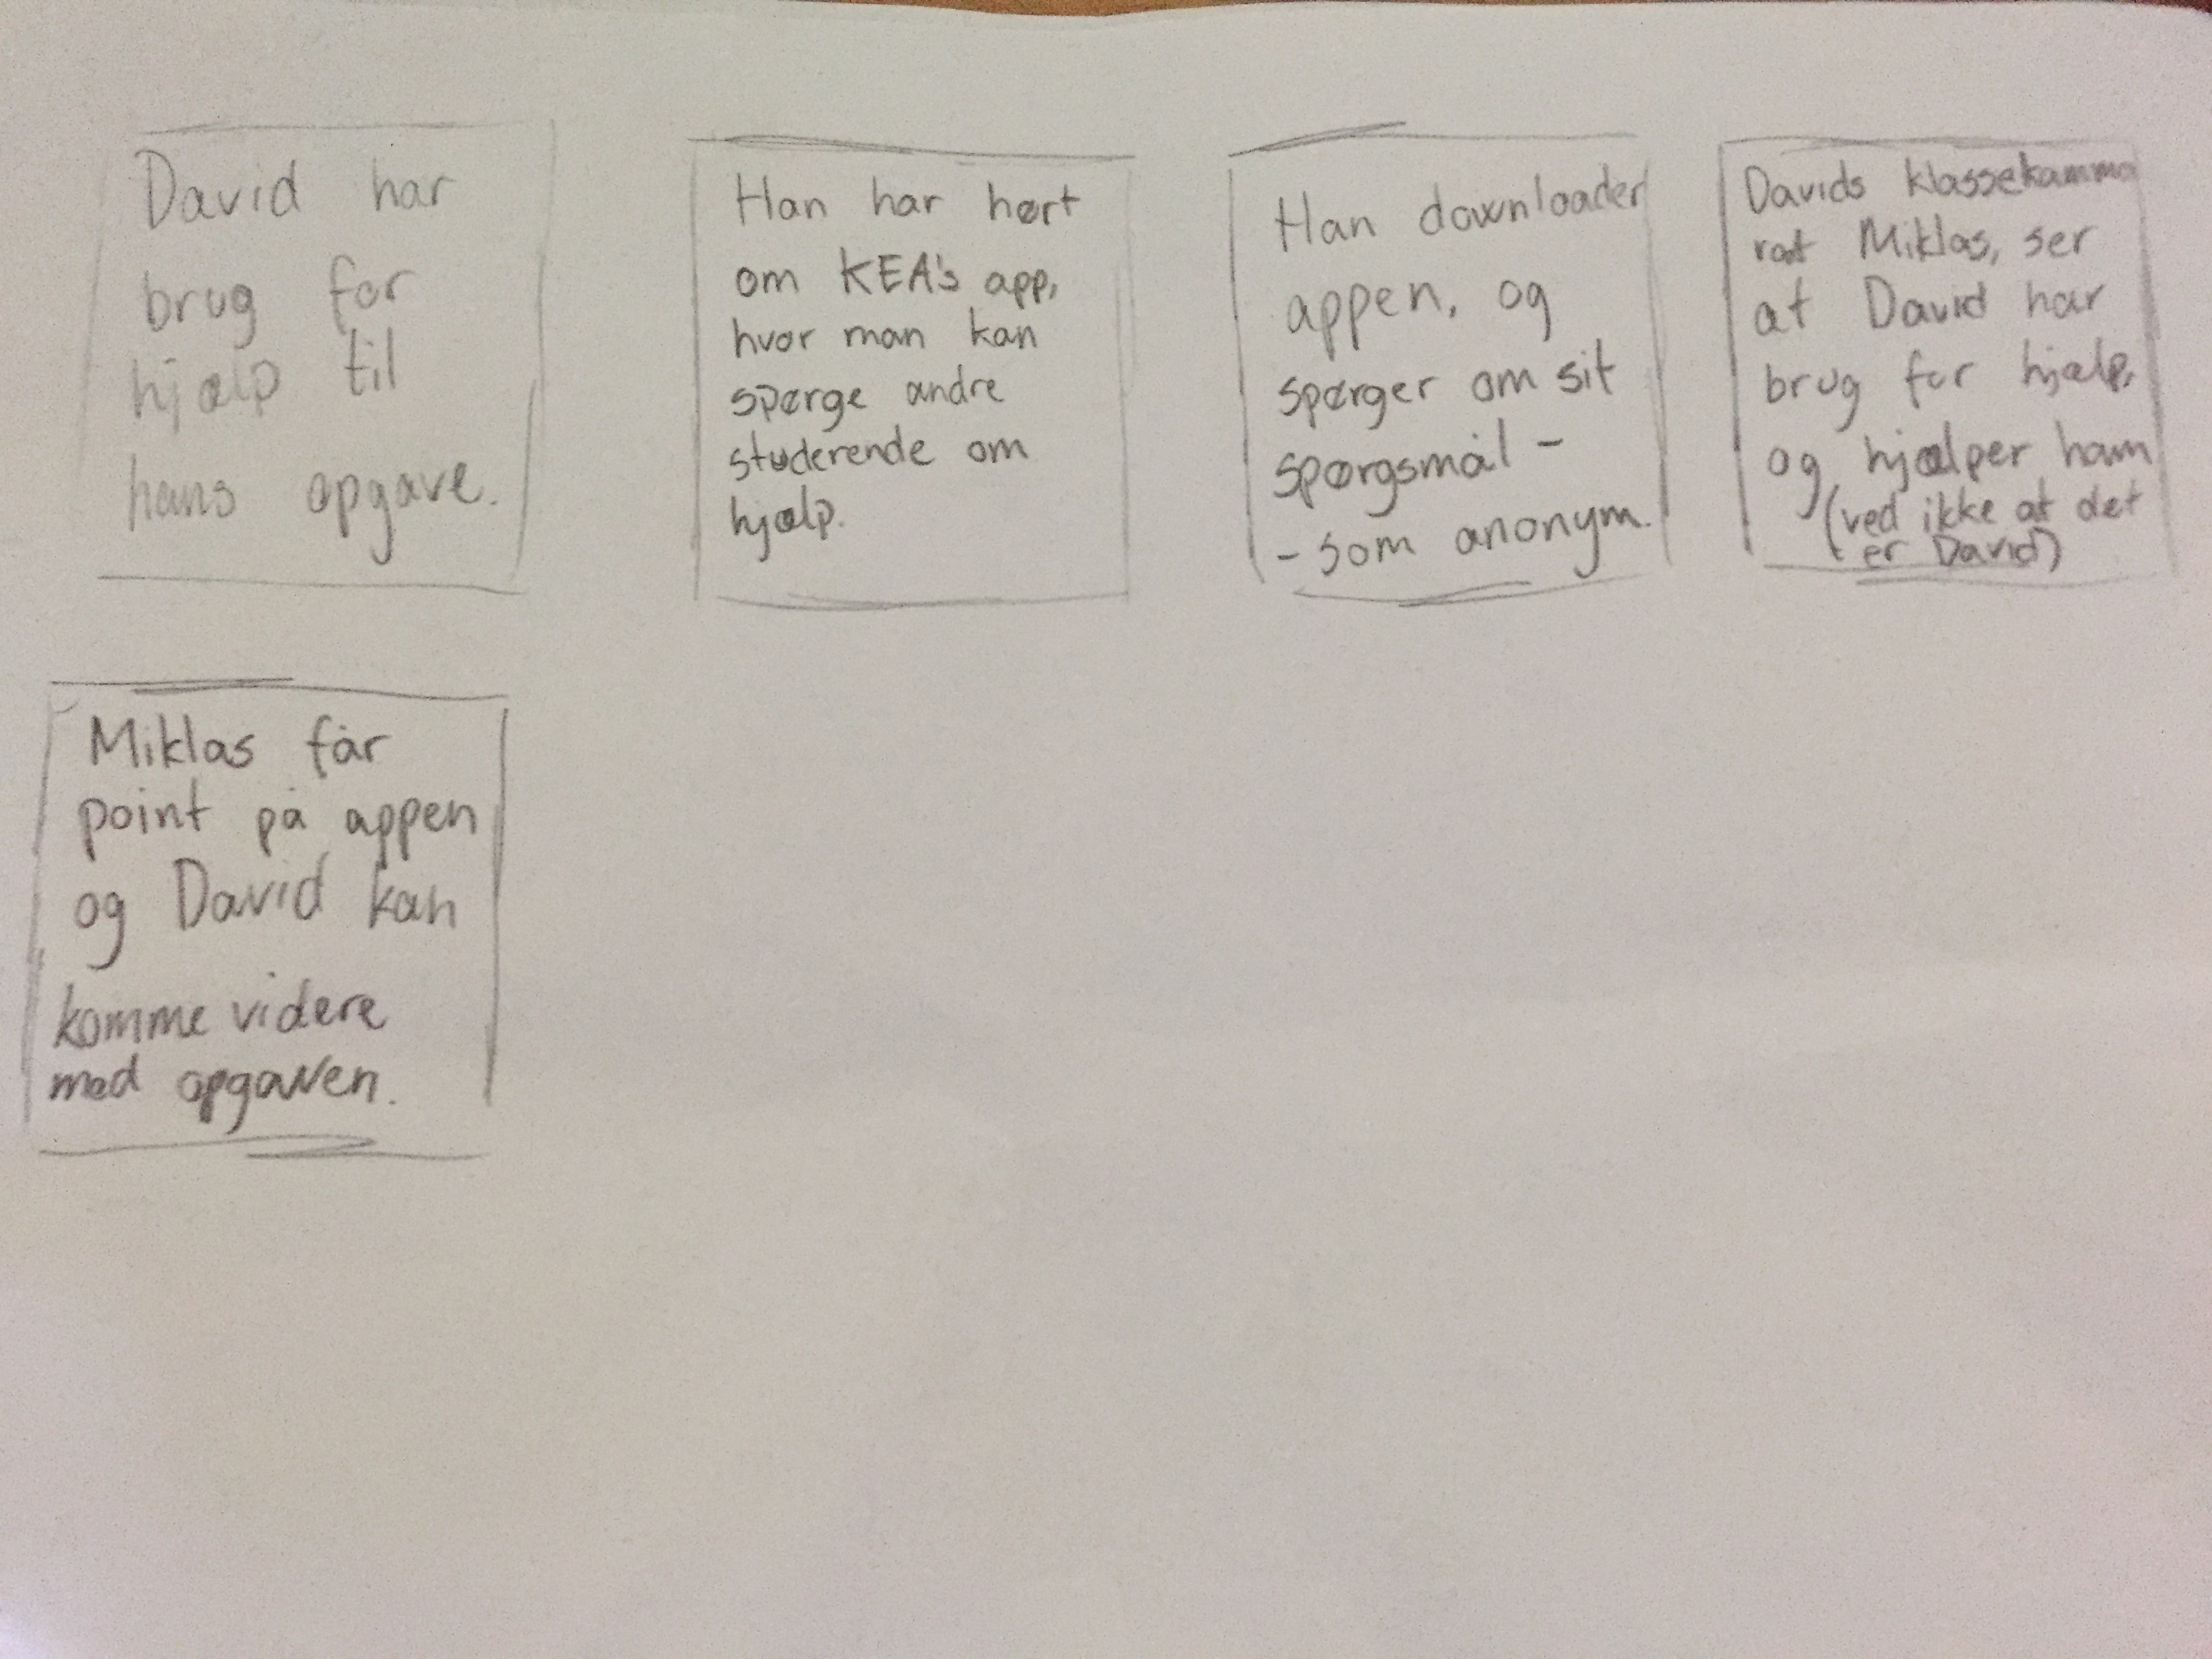 David har
brug for
hjælp til
hans opgave.
Han har hørt
om KEA's app,
hvor man kan
spørge andre
studerende om
hjælp.
Han downloader
appen, og
spørger om sit
spørgsmål -
- som anonym.
Davids klassekamme
rat Miklas, ser
at David har
brug for hjælp,
og hjælper ham
(ved ikke at det
er David)
Miklas får
point på appen
og David kan
komme videre
med opgaven.